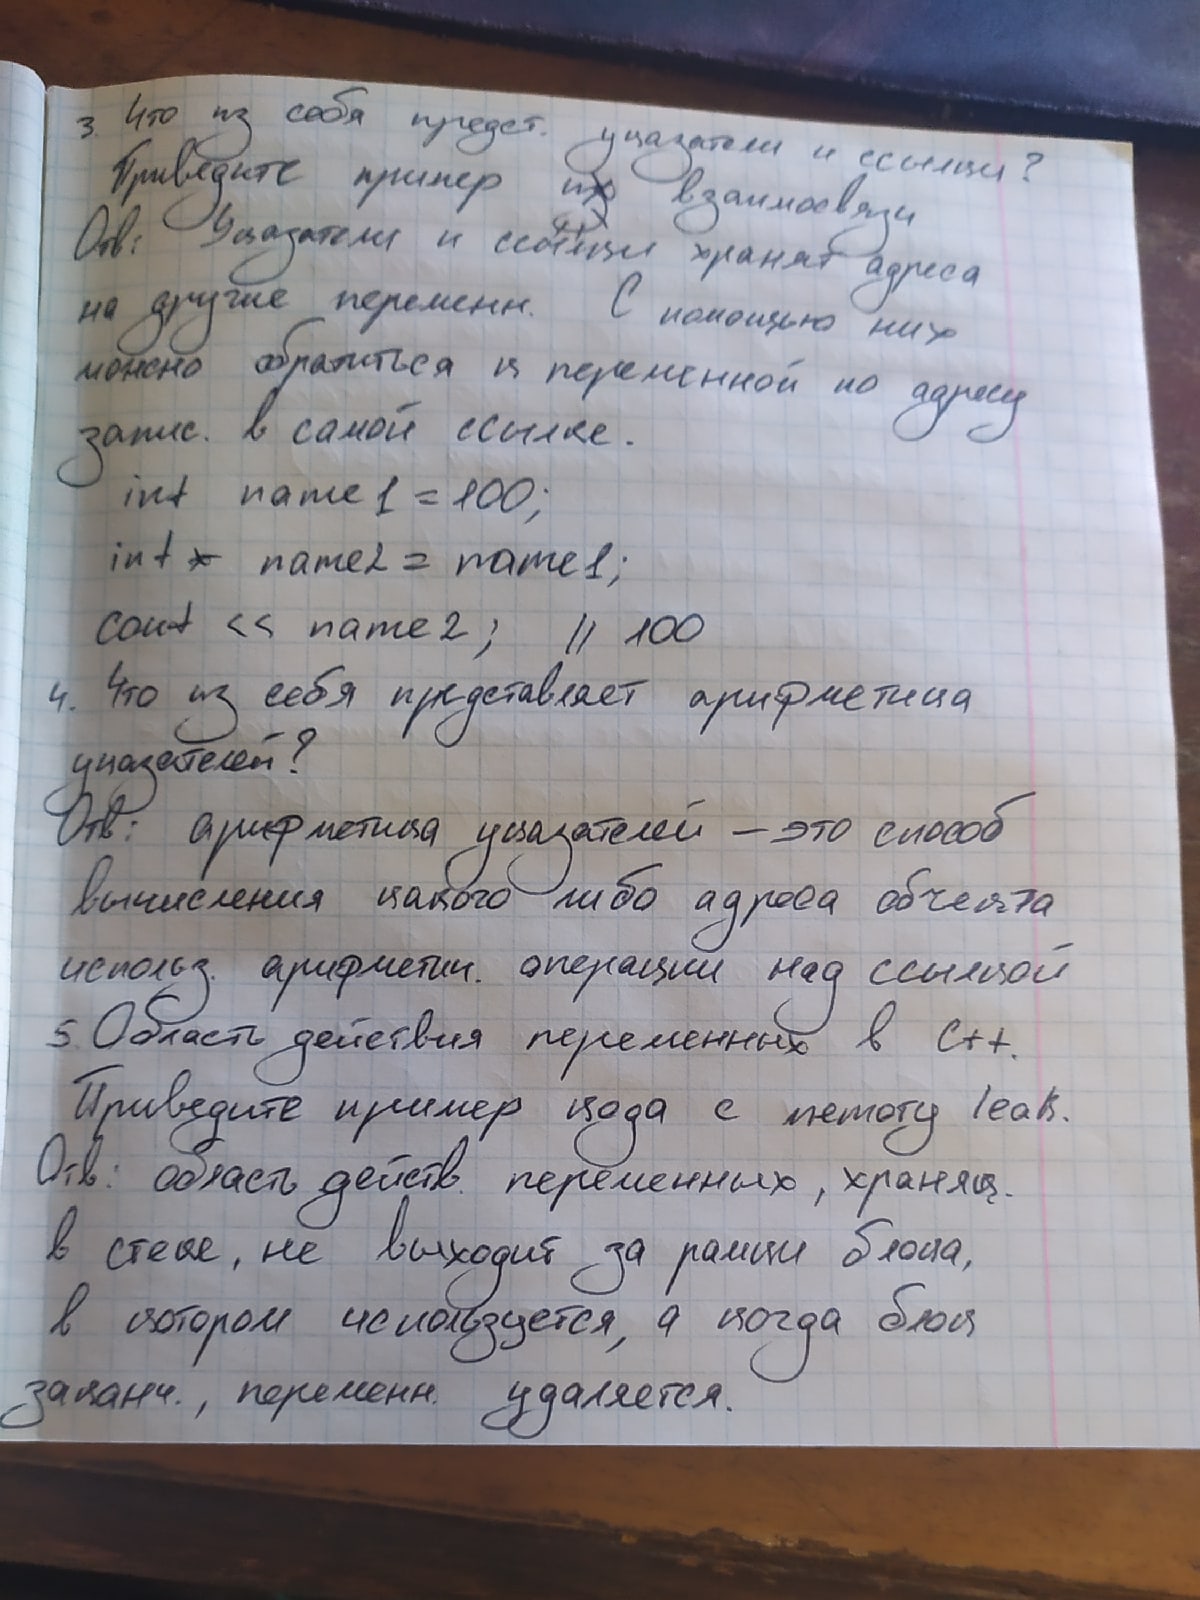 3. Что из себя предст. указатели и ссылки?
Приведите пример их взаимосвязи
Отв: Указатели и ссылки хранят адреса
на другие переменн. С помощью них
можно обратиться к переменной по адресу
запис. в самой ссылке.
int name1 = 100;
int * name2 = name1;
cout << name2; // 100
4. Что из себя представляет арифметика
указателей?
Отв: арифметика указателей – это способ
вычисления какого либо адреса обчекта
использ. арифметич. операции над ссылкой
5. Область действия переменных в C++.
Приведите пример кода с memory leak.
Отв: область действ. переменных, хранящ.
в стеке, не выходит за рамки блока,
в котором используется, а когда блок
заканч., переменн. удаляется.